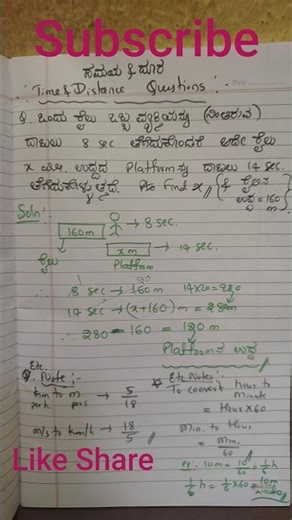 Subscribe
ಸಮಯ & ದೂರ
Time & Distance Questions :
Q. ಒಂದು ರೈಲು ಒಬ್ಬ ವ್ಯಕ್ತಿಯನ್ನು (ನಿಂತಿರುವ)
ದಾಟಲು 8 sec ತೆಗೆದುಕೊಂಡರೆ ಅದೇ ರೈಲು
x ಮೀ. ಉದ್ದದ Platform ನ್ನು ದಾಟಲು 14 sec.
ತೆಗೆದುಕೊಳ್ಳುತ್ತದೆ. To find x, { & ರೈಲಿನ
ಉದ್ದ = 160 m }
Soln :
160 m → 8 sec.
ರೈಲು x m → 14 sec.
Platform
20
8 sec → 160 m 14x20 = 280
14 sec → (x+160) m = 280 m
∴ 280 - 160 = 120 m
Platform ನ ಉದ್ದ
Note :-
km to m → 5/18
m/s to km/h → 18/5
Etc Notes :-
To convert hour to
minute
= Hour x 60
Min. to Hour
= Min./60
eg: 10m = 10/60 = 1/6 h
1/6 h = 1/6 x 60 = 10 m
Like Share